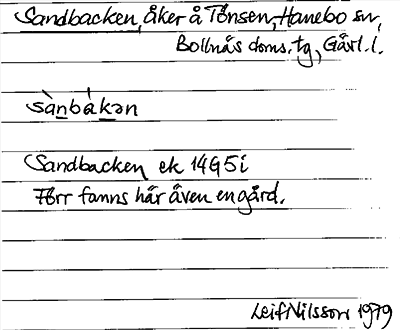 Sandbacken, åker å Tönsen, Hanebo sn,
Bollnäs doms. tg, Gävl. l.
sànbákən
Sandbacken ek 14G5i
Förr fanns här även en gård.
Leif Nilsson 1979